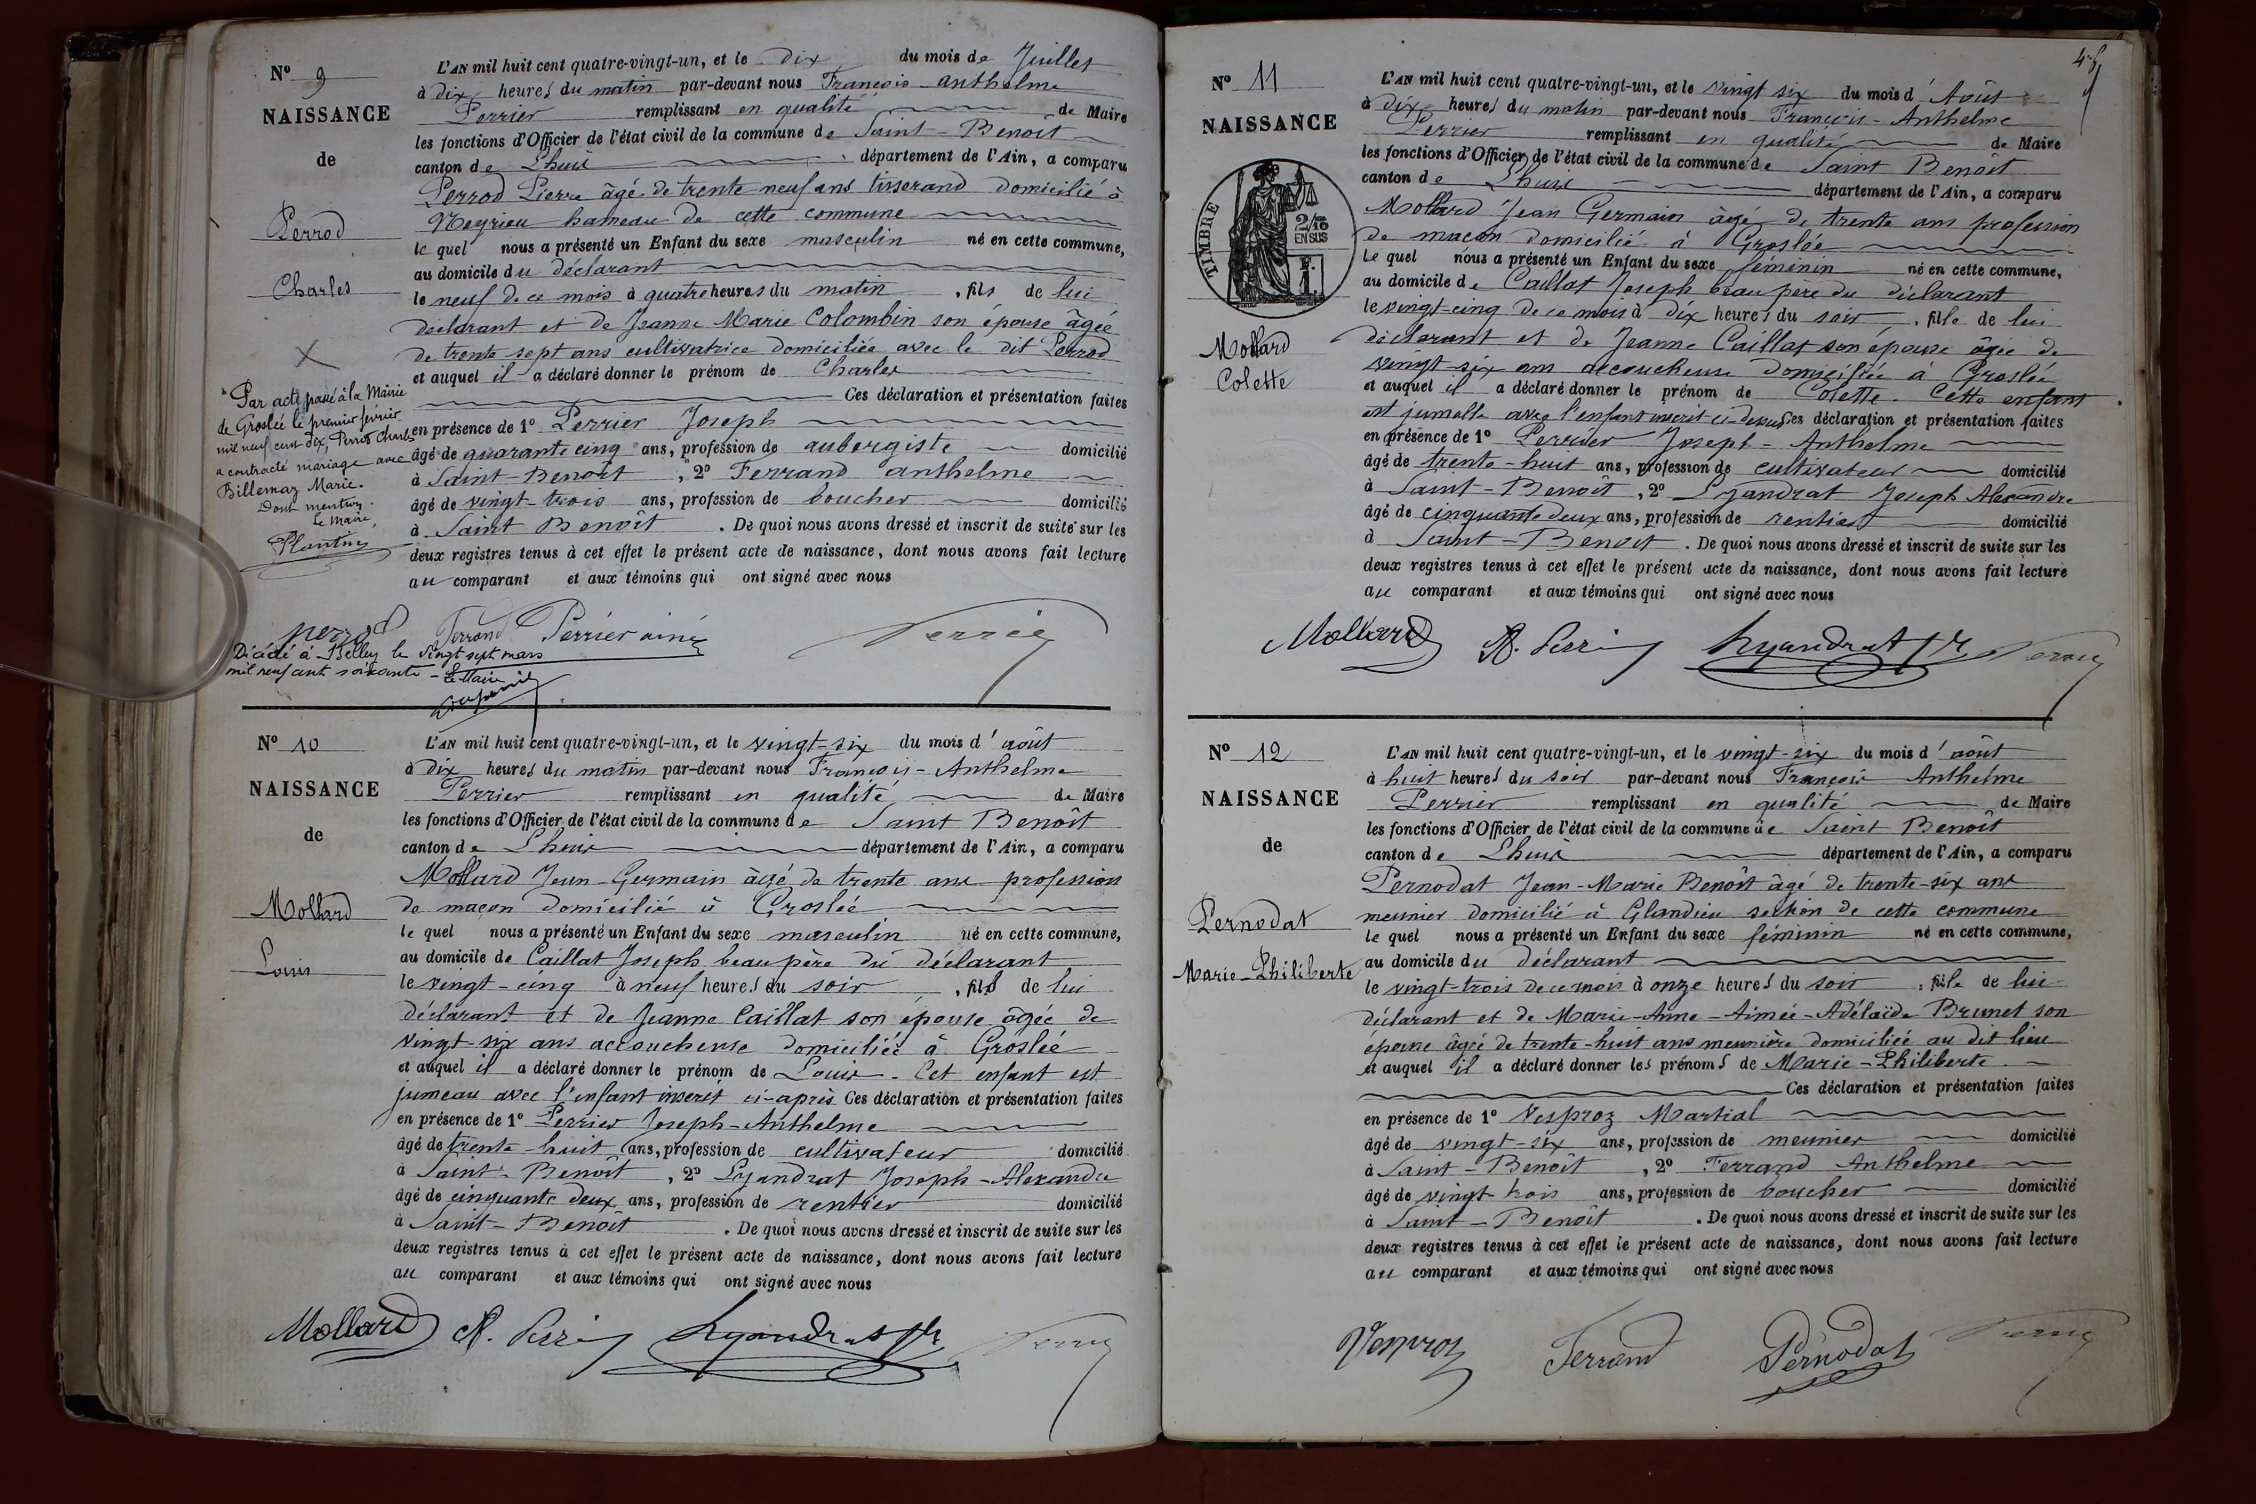 Nº 9
NAISSANCE
de
Perrod
Charles
L'AN mil huit cent quatre-vingt-un, et le dix du mois de Juillet
à dix heures du matin par-devant nous François Anthelme
Perrier remplissant en qualité de Maire
les fonctions d'Officier de l'état civil de la commune de Saint-Benoit
canton de Lhuis département de l'Ain, a comparu
Perrod Pierre âgé de trente neuf ans tisserand domicilié à
Meyrieu hameau de cette commune
le quel nous a présenté un Enfant du sexe masculin né en cette commune,
au domicile du déclarant
le neuf de ce mois à quatre heures du matin, fils de lui
déclarant et de Jeanne Marie Colombin son épouse âgée
de trente sept ans cultivatrice domiciliée avec le dit Perrod
et auquel il a déclaré donner le prénom de Charles
Ces déclaration et présentation faites
en présence de 1º Perrier Joseph
âgé de quarante cinq ans, profession de aubergiste domicilié
à Saint-Benoit, 2º Ferrand anthelme
âgé de vingt-trois ans, profession de boucher domicilié
à Saint Benoît. De quoi nous avons dressé et inscrit de suite sur les
deux registres tenus à cet effet le présent acte de naissance, dont nous avons fait lecture
au comparant et aux témoins qui ont signé avec nous
Par acte passé à la Mairie
de Groslée le premier février
mil neuf cent dix, Perrod Charles
a contracté mariage avec
Billemaz Marie.
Dont mention.
Le Maire,
Plantin
perrod Ferrand Perrier ainé Perrier
Décédé à Belley le vingt sept mars
mil neuf cent soixante - Le Maire
Nº 10
NAISSANCE
de
Mollard
Louis
L'AN mil huit cent quatre-vingt-un, et le vingt-six du mois d'août
à dix heures du matin par-devant nous François-Anthelme
Perrier remplissant en qualité de Maire
les fonctions d'Officier de l'état civil de la commune de Saint Benoît
canton de Lhuis département de l'Ain, a comparu
Mollard Jean-Germain âgé de trente ans profession
de maçon domicilié à Groslée
le quel nous a présenté un Enfant du sexe masculin né en cette commune,
au domicile de Caillat Joseph beau père du déclarant
le vingt-cinq à neuf heures du soir, fils de lui
déclarant et de Jeanne Caillat son épouse âgée de
vingt-six ans accoucheuse domiciliée à Groslée
et auquel il a déclaré donner le prénom de Louis. Cet enfant est
jumeau avec l'enfant inscrit ci-après Ces déclaration et présentation faites
en présence de 1º Perrier Joseph-Anthelme
âgé de trente-huit ans, profession de cultivateur domicilié
à Saint-Benoît, 2º Lyandrat Joseph-Alexandre
âgé de cinquante deux ans, profession de rentier domicilié
à Saint-Benoît. De quoi nous avons dressé et inscrit de suite sur les
deux registres tenus à cet effet le présent acte de naissance, dont nous avons fait lecture
au comparant et aux témoins qui ont signé avec nous
Mollard A. Perrier Lyandrat Perrier
45
Nº 11
NAISSANCE
TIMBRE
2/10
EN SUS
Mollard
Colette
L'AN mil huit cent quatre-vingt-un, et le vingt six du mois d'Août
à dix heures du matin par-devant nous François-Anthelme
Perrier remplissant en qualité de Maire
les fonctions d'Officier de l'état civil de la commune de Saint Benoît
canton de Lhuis département de l'Ain, a comparu
Mollard Jean Germain âgé de trente ans profession
de maçon domicilié à Groslée
le quel nous a présenté un Enfant du sexe féminin né en cette commune,
au domicile de Caillat Joseph beau père du déclarant
le vingt-cinq de ce mois à dix heures du soir, fille de lui
déclarant et de Jeanne Caillat son épouse âgée de
vingt-six ans accoucheuse domiciliée à Groslée
et auquel il a déclaré donner le prénom de Colette. Cette enfant
est jumelle avec l'enfant inscrit ci-dessus Ces déclaration et présentation faites
en présence de 1º Perrier Joseph-Anthelme
âgé de trente-huit ans, profession de cultivateur domicilié
à Saint-Benoît, 2º Lyandrat Joseph Alexandre
âgé de cinquante deux ans, profession de rentier domicilié
à Saint-Benoit. De quoi nous avons dressé et inscrit de suite sur les
deux registres tenus à cet effet le présent acte de naissance, dont nous avons fait lecture
au comparant et aux témoins qui ont signé avec nous
Mollard A. Perrier Lyandrat Perrier
Nº 12
NAISSANCE
de
Pernodat
Marie-Philiberte
L'AN mil huit cent quatre-vingt-un, et le vingt-six du mois d'août
à huit heures du soir par-devant nous François Anthelme
Perrier remplissant en qualité de Maire
les fonctions d'Officier de l'état civil de la commune de Saint Benoît
canton de Lhuis département de l'Ain, a comparu
Pernodat Jean-Marie Benoît âgé de trente-six ans
meunier domicilié à Glandieu section de cette commune
le quel nous a présenté un Enfant du sexe féminin né en cette commune,
au domicile du déclarant
le vingt-trois de ce mois à onze heures du soir, fille de lui
déclarant et de Marie-Anne-Aimée-Adélaïde Brunet son
épouse âgée de trente-huit ans meunière domiciliée au dit lieu
et auquel il a déclaré donner les prénoms de Marie-Philiberte
Ces déclaration et présentation faites
en présence de 1º Vesproz Martial
âgé de vingt-six ans, profession de meunier domicilié
à Saint-Benoît, 2º Ferrand Anthelme
âgé de vingt-trois ans, profession de boucher domicilié
à Saint-Benoît. De quoi nous avons dressé et inscrit de suite sur les
deux registres tenus à cet effet le présent acte de naissance, dont nous avons fait lecture
au comparant et aux témoins qui ont signé avec nous
Vesproz Ferrand Pernodat Perrier